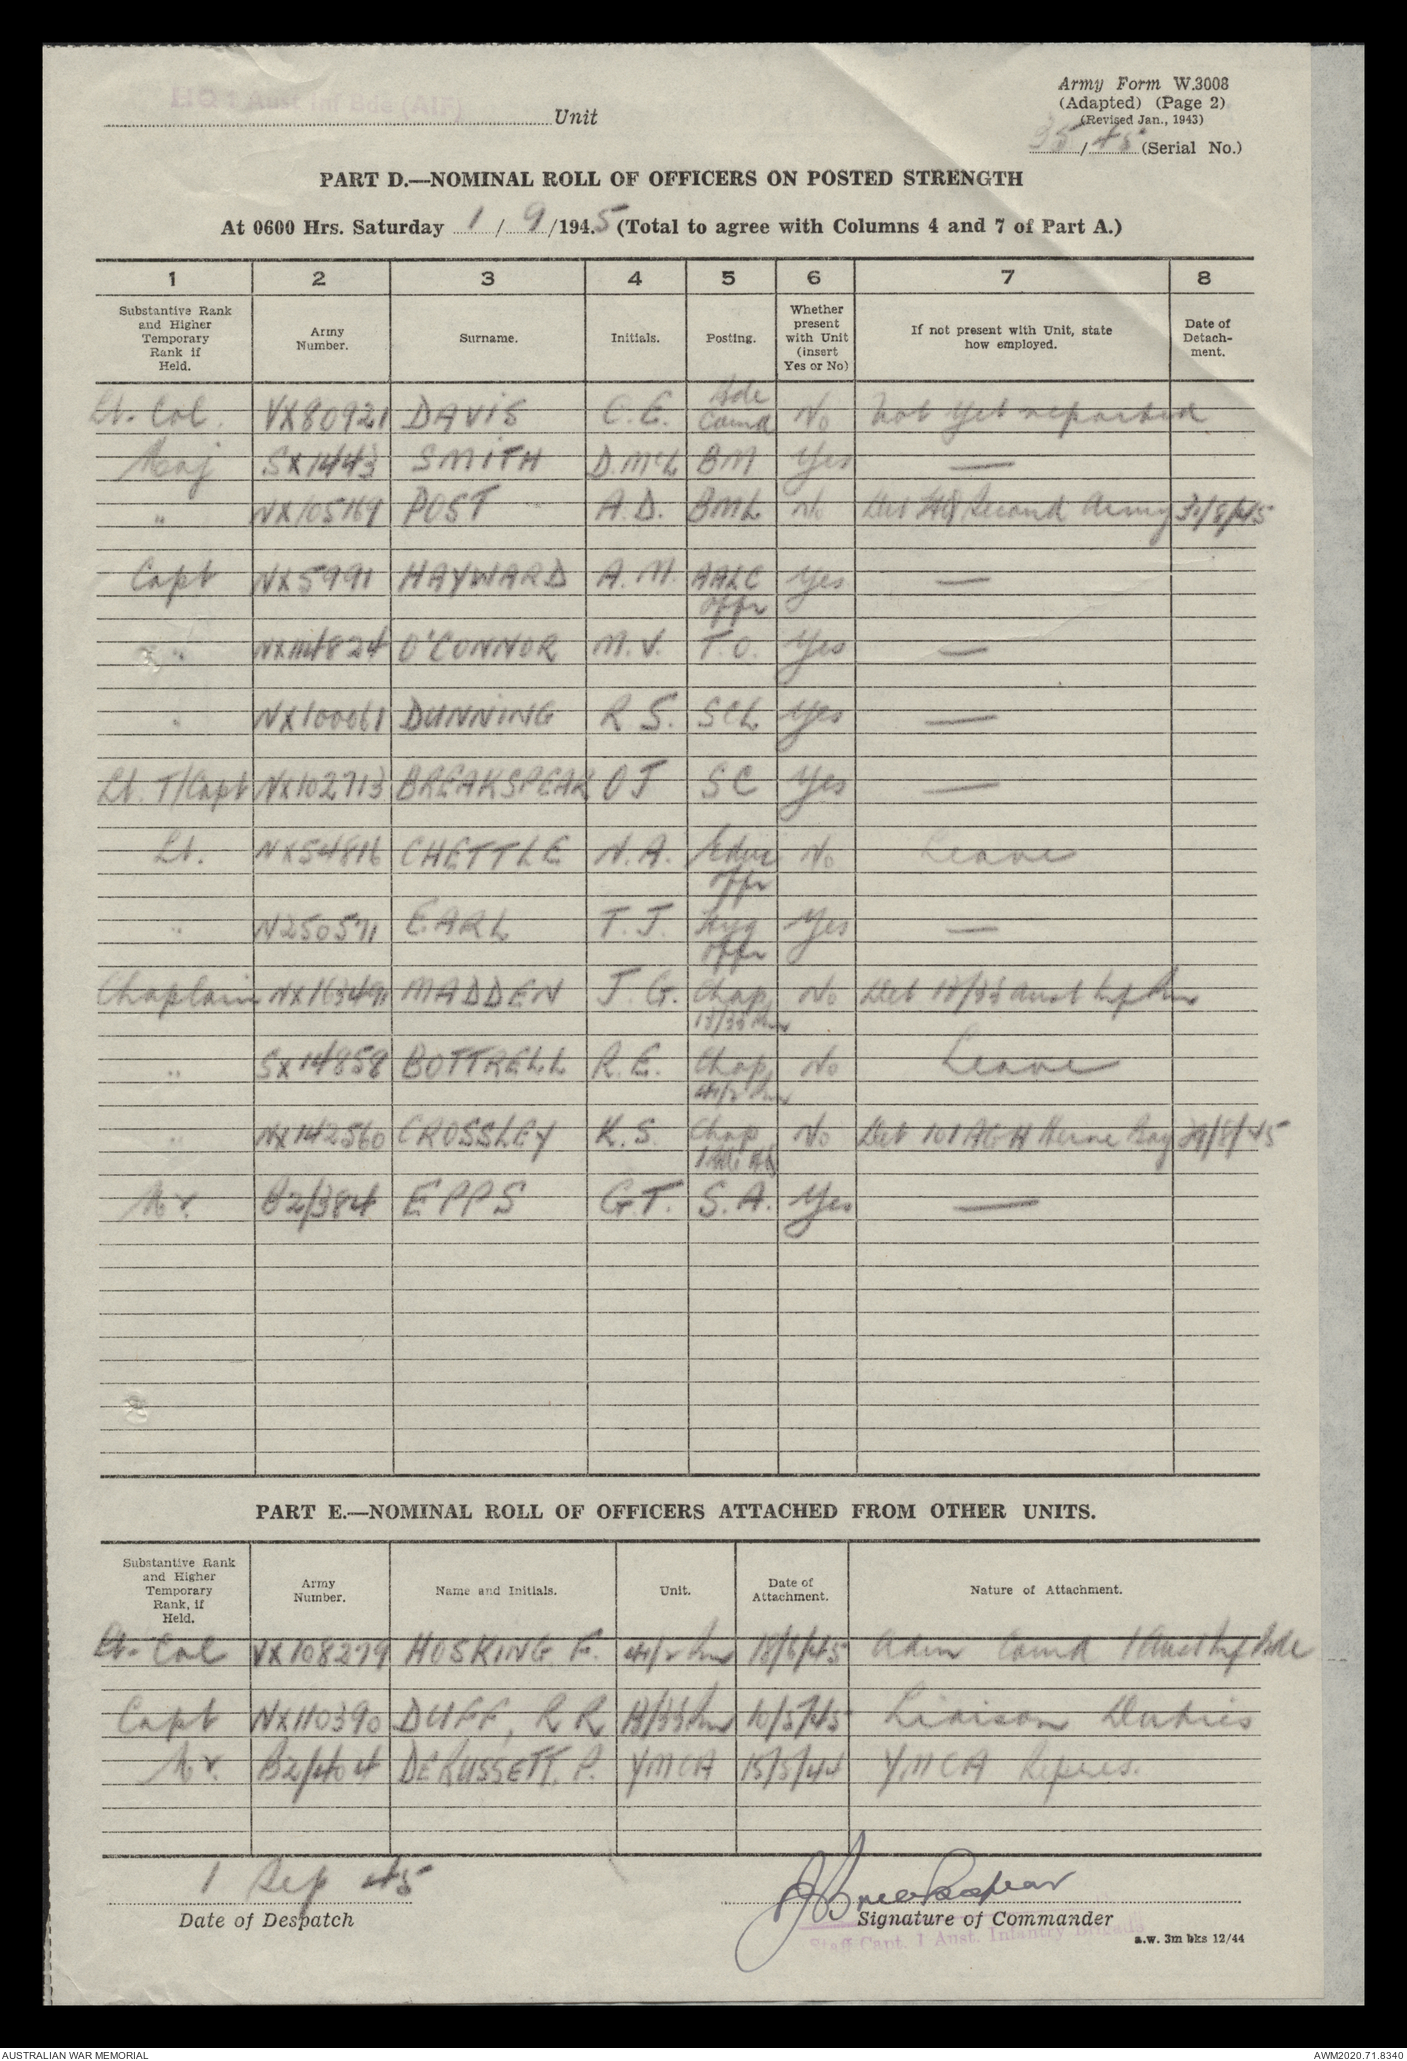 HQ 1 Aust Inf Bde (AIF)
Unit
Army Form W.3008
(Adapted) (Page 2)
(Revised Jan., 1943)
35/45 (Serial No.)
PART D.—NOMINAL ROLL OF OFFICERS ON POSTED STRENGTH
At 0600 Hrs. Saturday 1/9/1945 (Total to agree with Columns 4 and 7 of Part A.)
1 2 3 4 5 6 7 8
Substantive Rank and Higher Temporary Rank if Held. Army Number. Surname. Initials. Posting. Whether present with Unit (insert Yes or No) If not present with Unit, state how employed. Date of Detachment.
Lt. Col. VX80921 DAVIS C.E. Bde Comd No Not yet reported
Maj SX1443 SMITH D.McL BM Yes —
" NX105169 POST A.D. BML No Det HQ Second Army 30/8/45
Capt NX5991 HAYWARD A.M. AALC offr Yes —
" O'CONNOR M.V. T.O. Yes —
" NX100061 DUNNING R S. SCL Yes —
Lt. T/Capt NX102713 BREAKSPEAR O J SC Yes —
Lt. NX54816 CHETTLE N.A. Educ offr No Leave
" N250571 EARL T.J. Hyg offr Yes —
Chaplain NX163491 MADDEN J.G. Chap 13/33 Bn No Det 13/33 Aust Inf Bn
" SX14858 BOTTRELL R.E. Chap 41/2 Bn No Leave
" NX142560 CROSSLEY K.S. Chap No Det 101 AGH Herne Bay 29/8/45
Mr. B2/384 EPPS G.T. S.A. Yes —
PART E.—NOMINAL ROLL OF OFFICERS ATTACHED FROM OTHER UNITS.
Substantive Rank and Higher Temporary Rank, if Held. Army Number. Name and Initials. Unit. Date of Attachment. Nature of Attachment.
Lt. Col VX108279 HOSKING, F. 41/2 Bn 18/6/45 Adm Comd 1 Aust Inf Bde
Capt NX110390 DUFF, R R 13/33 Bn 10/5/45 Liaison Duties
Mr. B2/404 DERUSSETT, P. YMCA 15/5/44 YMCA Repres.
1 Sep 45
Date of Despatch
OJ Breakspear
Signature of Commander
Staff Capt. 1 Aust. Infantry Brigade
a.w. 3m bks 12/44
AUSTRALIAN WAR MEMORIAL
AWM2020.71.8340